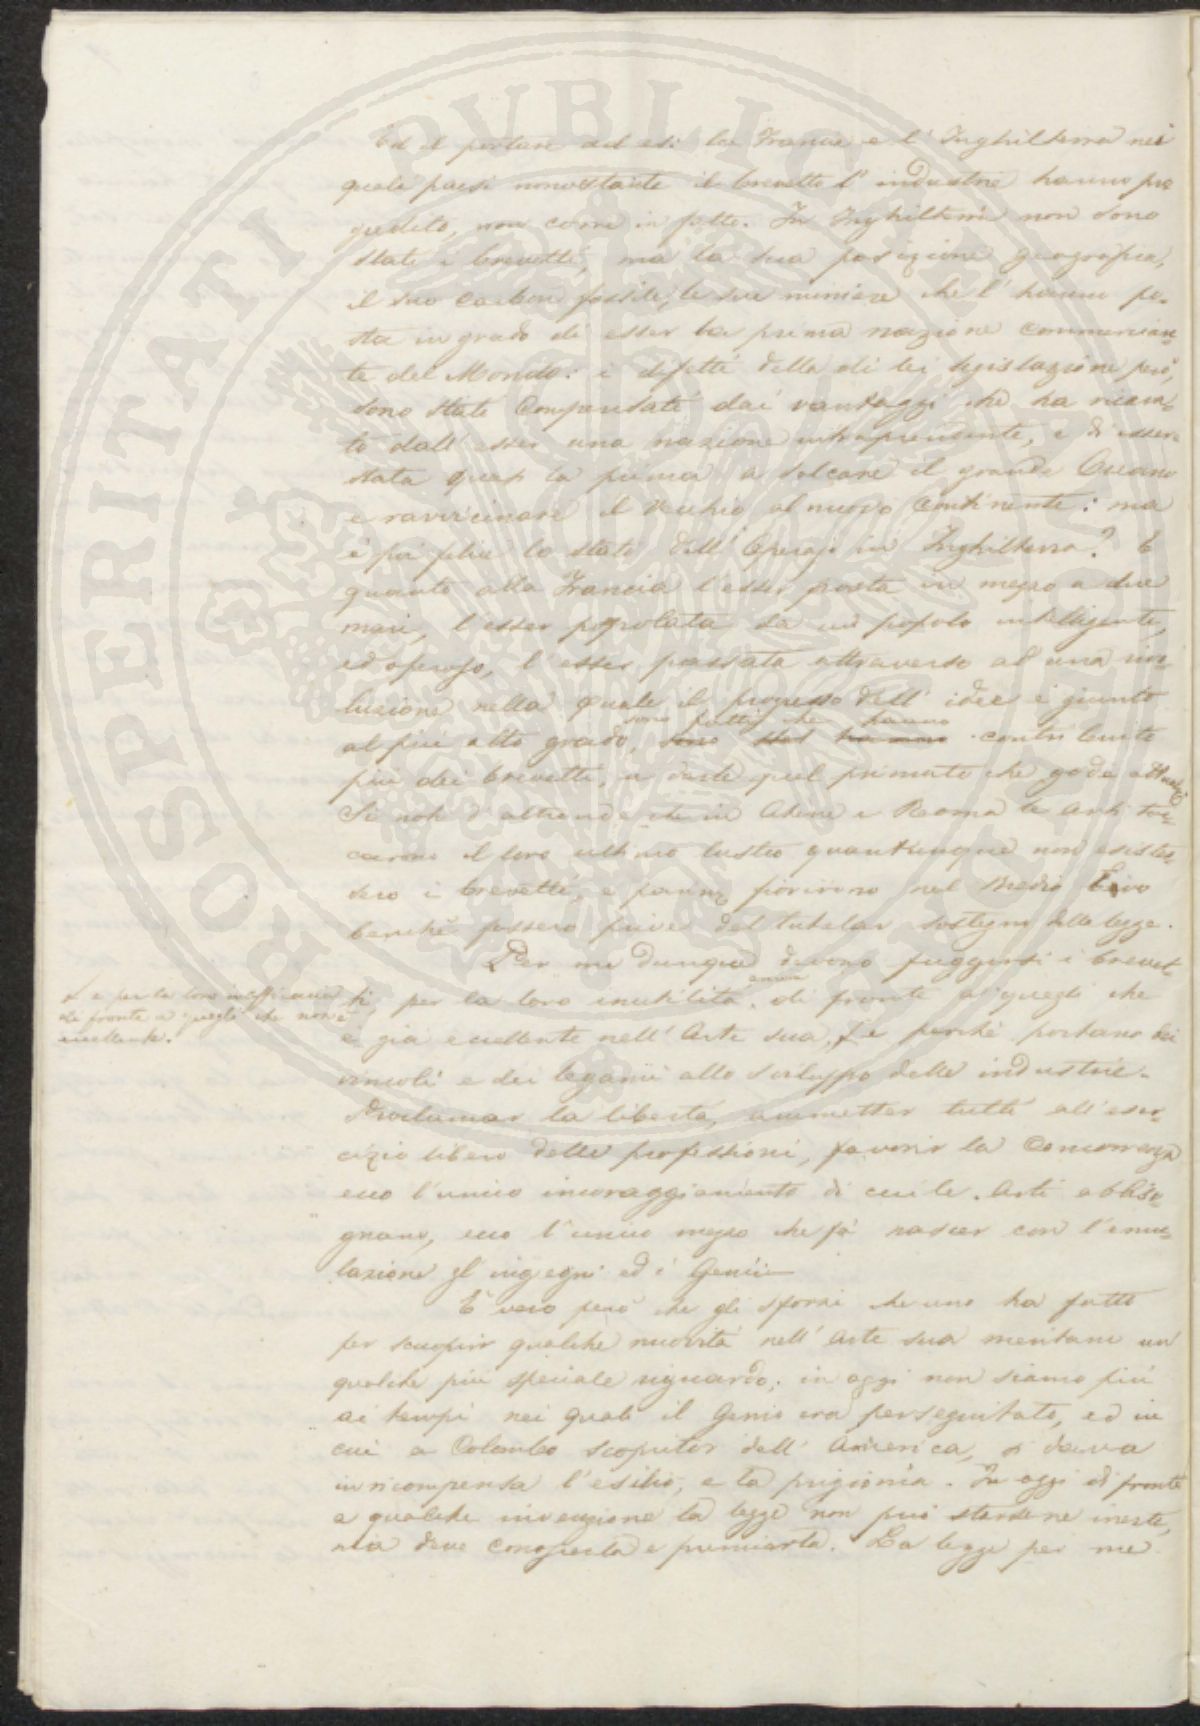 Ed il portare ad es: la Francia e l'Inghilterra nei
quali paesi nonostante il brevetto l'industrie hanno pro
gredito, non corre in fatto. In Inghilterra non sono
stati i brevetti, ma la sua posizione geografica,
il suo carbon fossile, le sue miniere che l'hanno po-
sta in grado di esser la prima nazione commercian-
te del Mondo: i difetti della di lei legislazione però,
sono stati compensati dai vantaggi che ha ricava-
to dall'esser una nazione intraprendente, e di esser
stata quasi la prima a solcare il grande Oceano
e ravvicinare il vecchio al nuovo Continente: ma
è poi felice lo stato dell'Operajo in Inghilterra? E
quanto alla Francia l'esser posta in mezzo a due
mari, l'esser popolata da un popolo intelligente,
ed operajo, l'esser passata attraverso ad una rivo-
luzione nella quale il progresso dell'idee è giunto
sono fatti che hanno
al più alto grado, contribuito
più dei brevetti, a darle quel primato che gode attual
Si noti d'altronde che in Atene e Roma le Arti toc-
carono il loro ultimo lustro quantunque non esistes-
sero i brevetti, e fiorirono nel Medio Evo
benchè fossero prive del tutelar sostegno della legge.
Per me dunque devono fuggirsi i brevet-
ti, per la loro inutilità di fronte a quegli che
è già eccellente nell'Arte sua, e perchè portano dei
vincoli e dei legami allo sviluppo delle industrie.
e per la loro inefficacia
di fronte a quegli che non è
eccellente.
Proclamar la libertà, ammetter tutti all'eser-
cizio libero delle professioni, favorir la Concorrenza
ecco l'unico incoraggiamento di cui le Arti abbiso-
gnano, ecco l'unico mezzo che fà nascer con l'emu-
lazione gl'ingegni ed i Genii
È vero però che gli sforzi che uno ha fatto
per scuoprir qualche novità nell'Arte sua meritano un
qualche più speciale riguardo; in oggi non siamo più
ai tempi nei quali il Genio era perseguitato, ed in
cui a Colombo scopritor dell'America, si dava
in ricompensa l'esilio, e la prigionia. In oggi di fronte
a qualche invenzione la legge non può starsene inerte,
ma deve conoscerla e premiarla. La legge per me